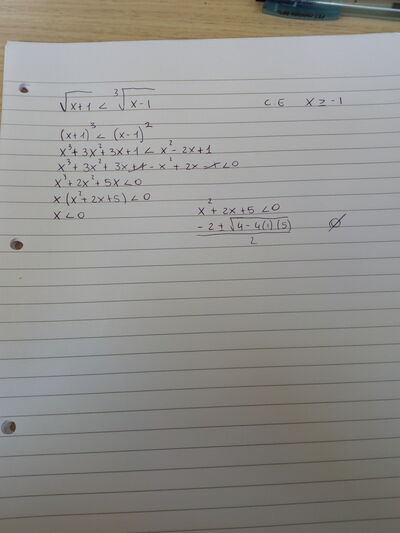 √x+1 < ³√x-1 C E X ≥ -1
(x+1)³ < (x-1)²
x³+3x²+3x+1 < x²-2x+1
x³+3x²+3x+1-x²+2x-1<0
x³+2x²+5x<0
x(x²+2x+5)<0
x<0 x²+2x+5<0
-2+√4-4(1)(5)
2
∅